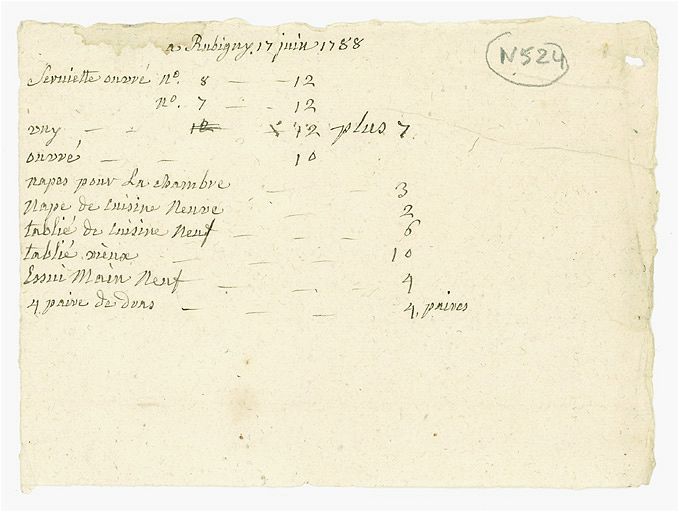 a Rubigny, 17 juin 1788
N524
Serviette ouvré nº. 8 — — 12
nº. 7 — — 12
uny — — 12 x 12 plus 7
ouvré — — 10
napes pour La chambre — — 3
Nape de cuisine Neuve — — 2
tablié de cuisine Neuf — — 6
tablié vieux — — — 10
Essui Main Neuf — — — 4
4 paire de dras — — — 4, paires